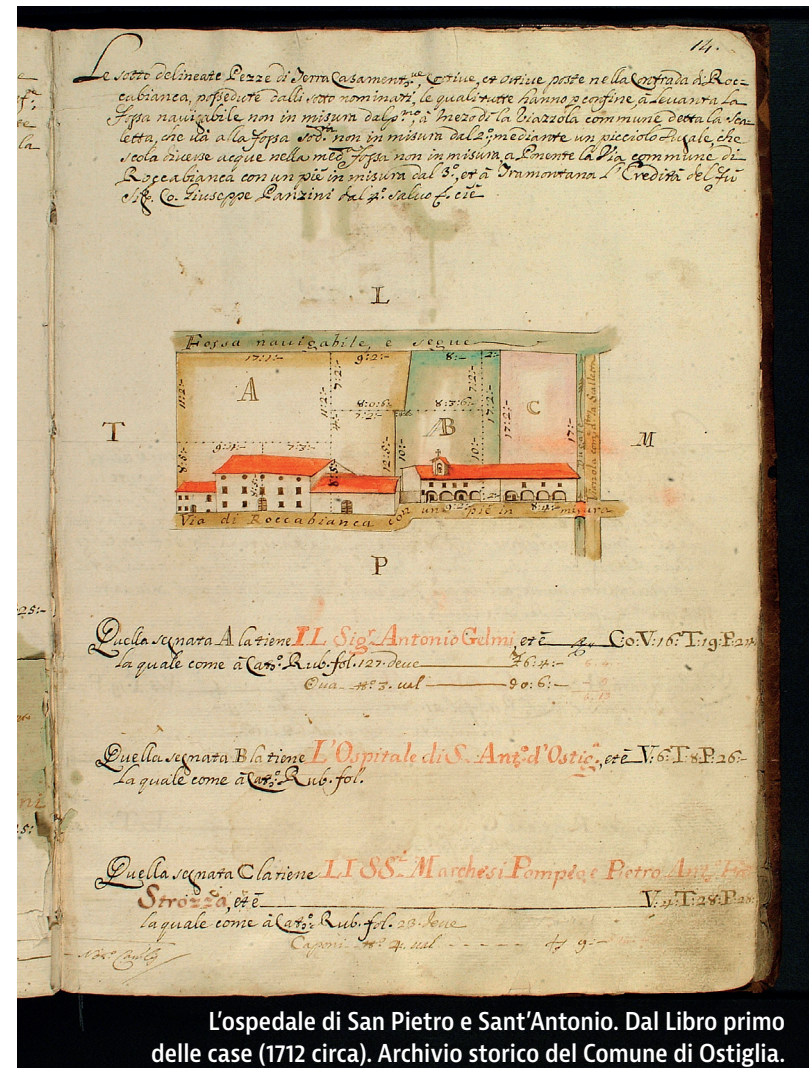 14.
Le sotto delineate Pezze di Terra Casament.ve Cortive, et ortive poste nella Contrada di Roc-
cabianca, possedute dalli sotto nominati, le quali tutte hanno p confine, à Levante La
Fossa navigabile non in misura dal p.mo, à Mezo dì la Viazzola commune detta la Sca-
letta, che và alla fossa sod.a non in misura dal 2; mediante un picciolo Dugale, che
scola diverse acque nella med.a fossa non in misura, a Ponente la Via commune di
Roccabianca con un piè in misura dal 3.o, et à Tramontana L'Eredità del fù
Sig. Co. Giuseppe Panzini dal 4.o salvo &.
L
Fossa navigabile, e segue
17:1:-
9:2:-
8:-
2:-
A
11:2:-
7:2:-
11:2:-
8:0:6:-
7:2:-
8:3:6:-
7:2:-
17:2:-
B
C
17:2:-
17:-
T
M
8:5:-
9:4:-
7:3:-
8:5:-
12:5:-
10:-
10:-
2:-
Dugale
9:2:-
8:4:-
Via di Roccabianca con uno piè in misura
P
Quella segnata A la tiene IL Sig.r Antonio Gelmi, et è C:0:V:16:T:19:P:
la quale come à Cat.o Rub. fol. 127. deve 76:4:-
Ova n.o 3. val 90:6:-
Quella segnata B la tiene L'Ospitale di S. Ant.o d'Ostig.a, et è V:6:T:8:P:26:-
La quale come à Cat.o Rub. fol.
Quella segnata C la tiene LI SS.ri Marchesi Pompeo, e Pietro Ant.o
Strozza, et è V:4:T:28:P:
la quale come à Cat.o Rub. fol. 23. deve
Caponi n.o 4. val 9:-
L'ospedale di San Pietro e Sant'Antonio. Dal Libro primo
delle case (1712 circa). Archivio storico del Comune di Ostiglia.